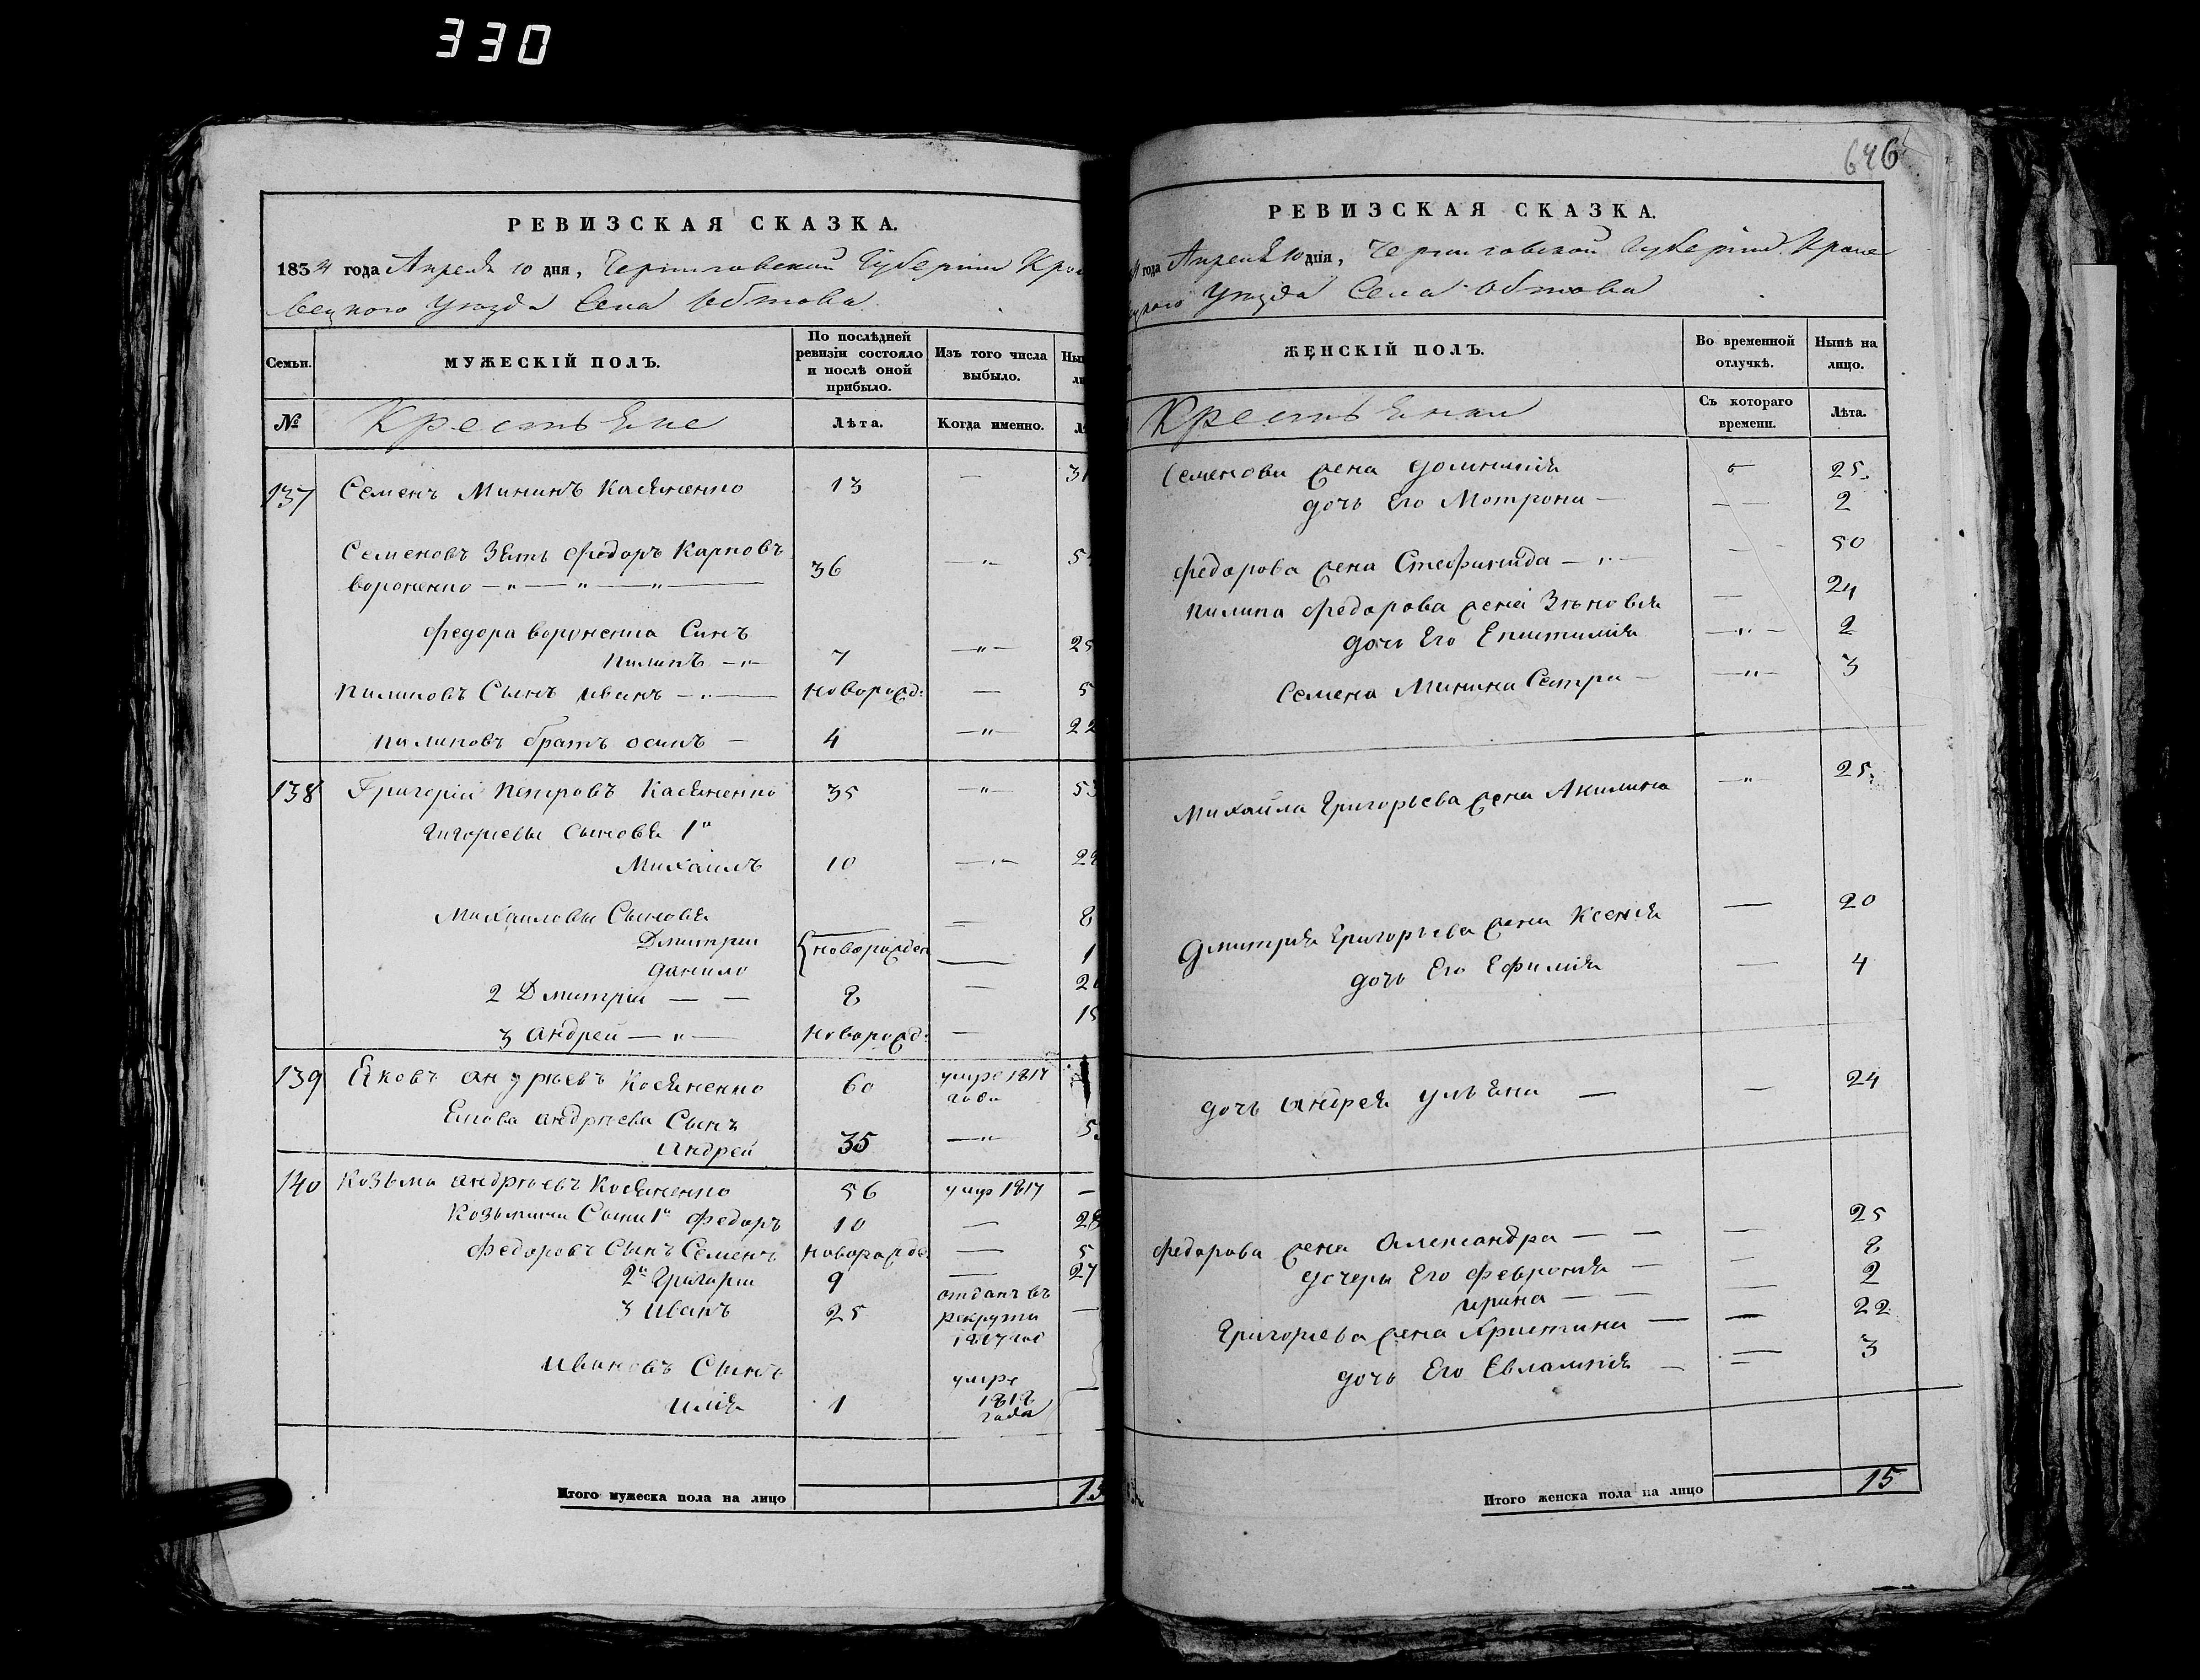 330
РЕВИЗСКАЯ СКАЗКА.
1834 года Апреля 10 дня, Черниговской Губернии Кро
вецкого Уезда Села Обтова
Семьи.
МУЖЕСКІЙ ПОЛЪ.
По послѣдней ревизіи состояло и послѣ оной прибыло.
Изъ того числа выбыло.
№
Крестьяне
Лѣта.
Когда именно.
137 Семенъ Мининъ Касяненко 13 — 31
Семеновъ Зять Федоръ Карповъ
вороненко — " — " — " — 36 — " —
Федора вороненка Синъ
пилипъ — " — 7 — " — 25
пилиповъ Сынъ иванъ — " — новорожд: — 5
пилиповъ братъ осипъ — 4 — " — 22
138 Григорій петровъ Касяненко 35 — " — 53
Григориевы сыновя 1й
Михаилъ 10 — " — 28
Михаиловы Сыновя 8
Дмитрии новорожден —
данило — 1
2 Дмитрій — — 8 — 26
3 андрей — " — новорожд: — 15
139 Яковъ андрѣевъ Косяненко 60 умре 1817 года
Якова андрѣева Сынъ
андрей 35 — " —
140 Козьма андрѣевъ Косяненко 56 умр 1817 —
Козьмини Сыни 1й Федоръ 10 — 28
Федоровъ Сынъ Семенъ новорожде. — 5
2й Григорій 9 — 27
3 иванъ 25 отданъ въ рекруты 1817 —
ивановъ Сынъ
илия 1 умре 1818 года —
Итого мужеска пола на лицо 13
646
РЕВИЗСКАЯ СКАЗКА.
года Апреля 10 дня, Черниговской Губерніи Кроле
Уезда Села Обтова
ЖЕНСКІЙ ПОЛЪ.
Во временной отлучкѣ.
Нынѣ на лицо.
Крестьянки
Съ котораго времени.
Лѣта.
Семенова жена домникия 25.
дочь Его Мотрона — — — 2
Федорова жена Стефанида — " — — — 50
пилипа Федорова жена Зѣновья — 24
дочь Его Епистимия — " — 2
Семена Минина Сестра — — " — 3
Михайла Григорьева жена Акилина — " — 25.
Дмитрия Григорьева жена Ксения — 20
дочь Его Ефимия — 4
дочь андрея ульяна — — 24
Федорова жена Александра — — — 25
дочери Его Феврония — — 8
ирина — — — 2
Григориева жена Христина — — 22
дочь Его Евлампия — — 3
Итого женска пола на лицо 15